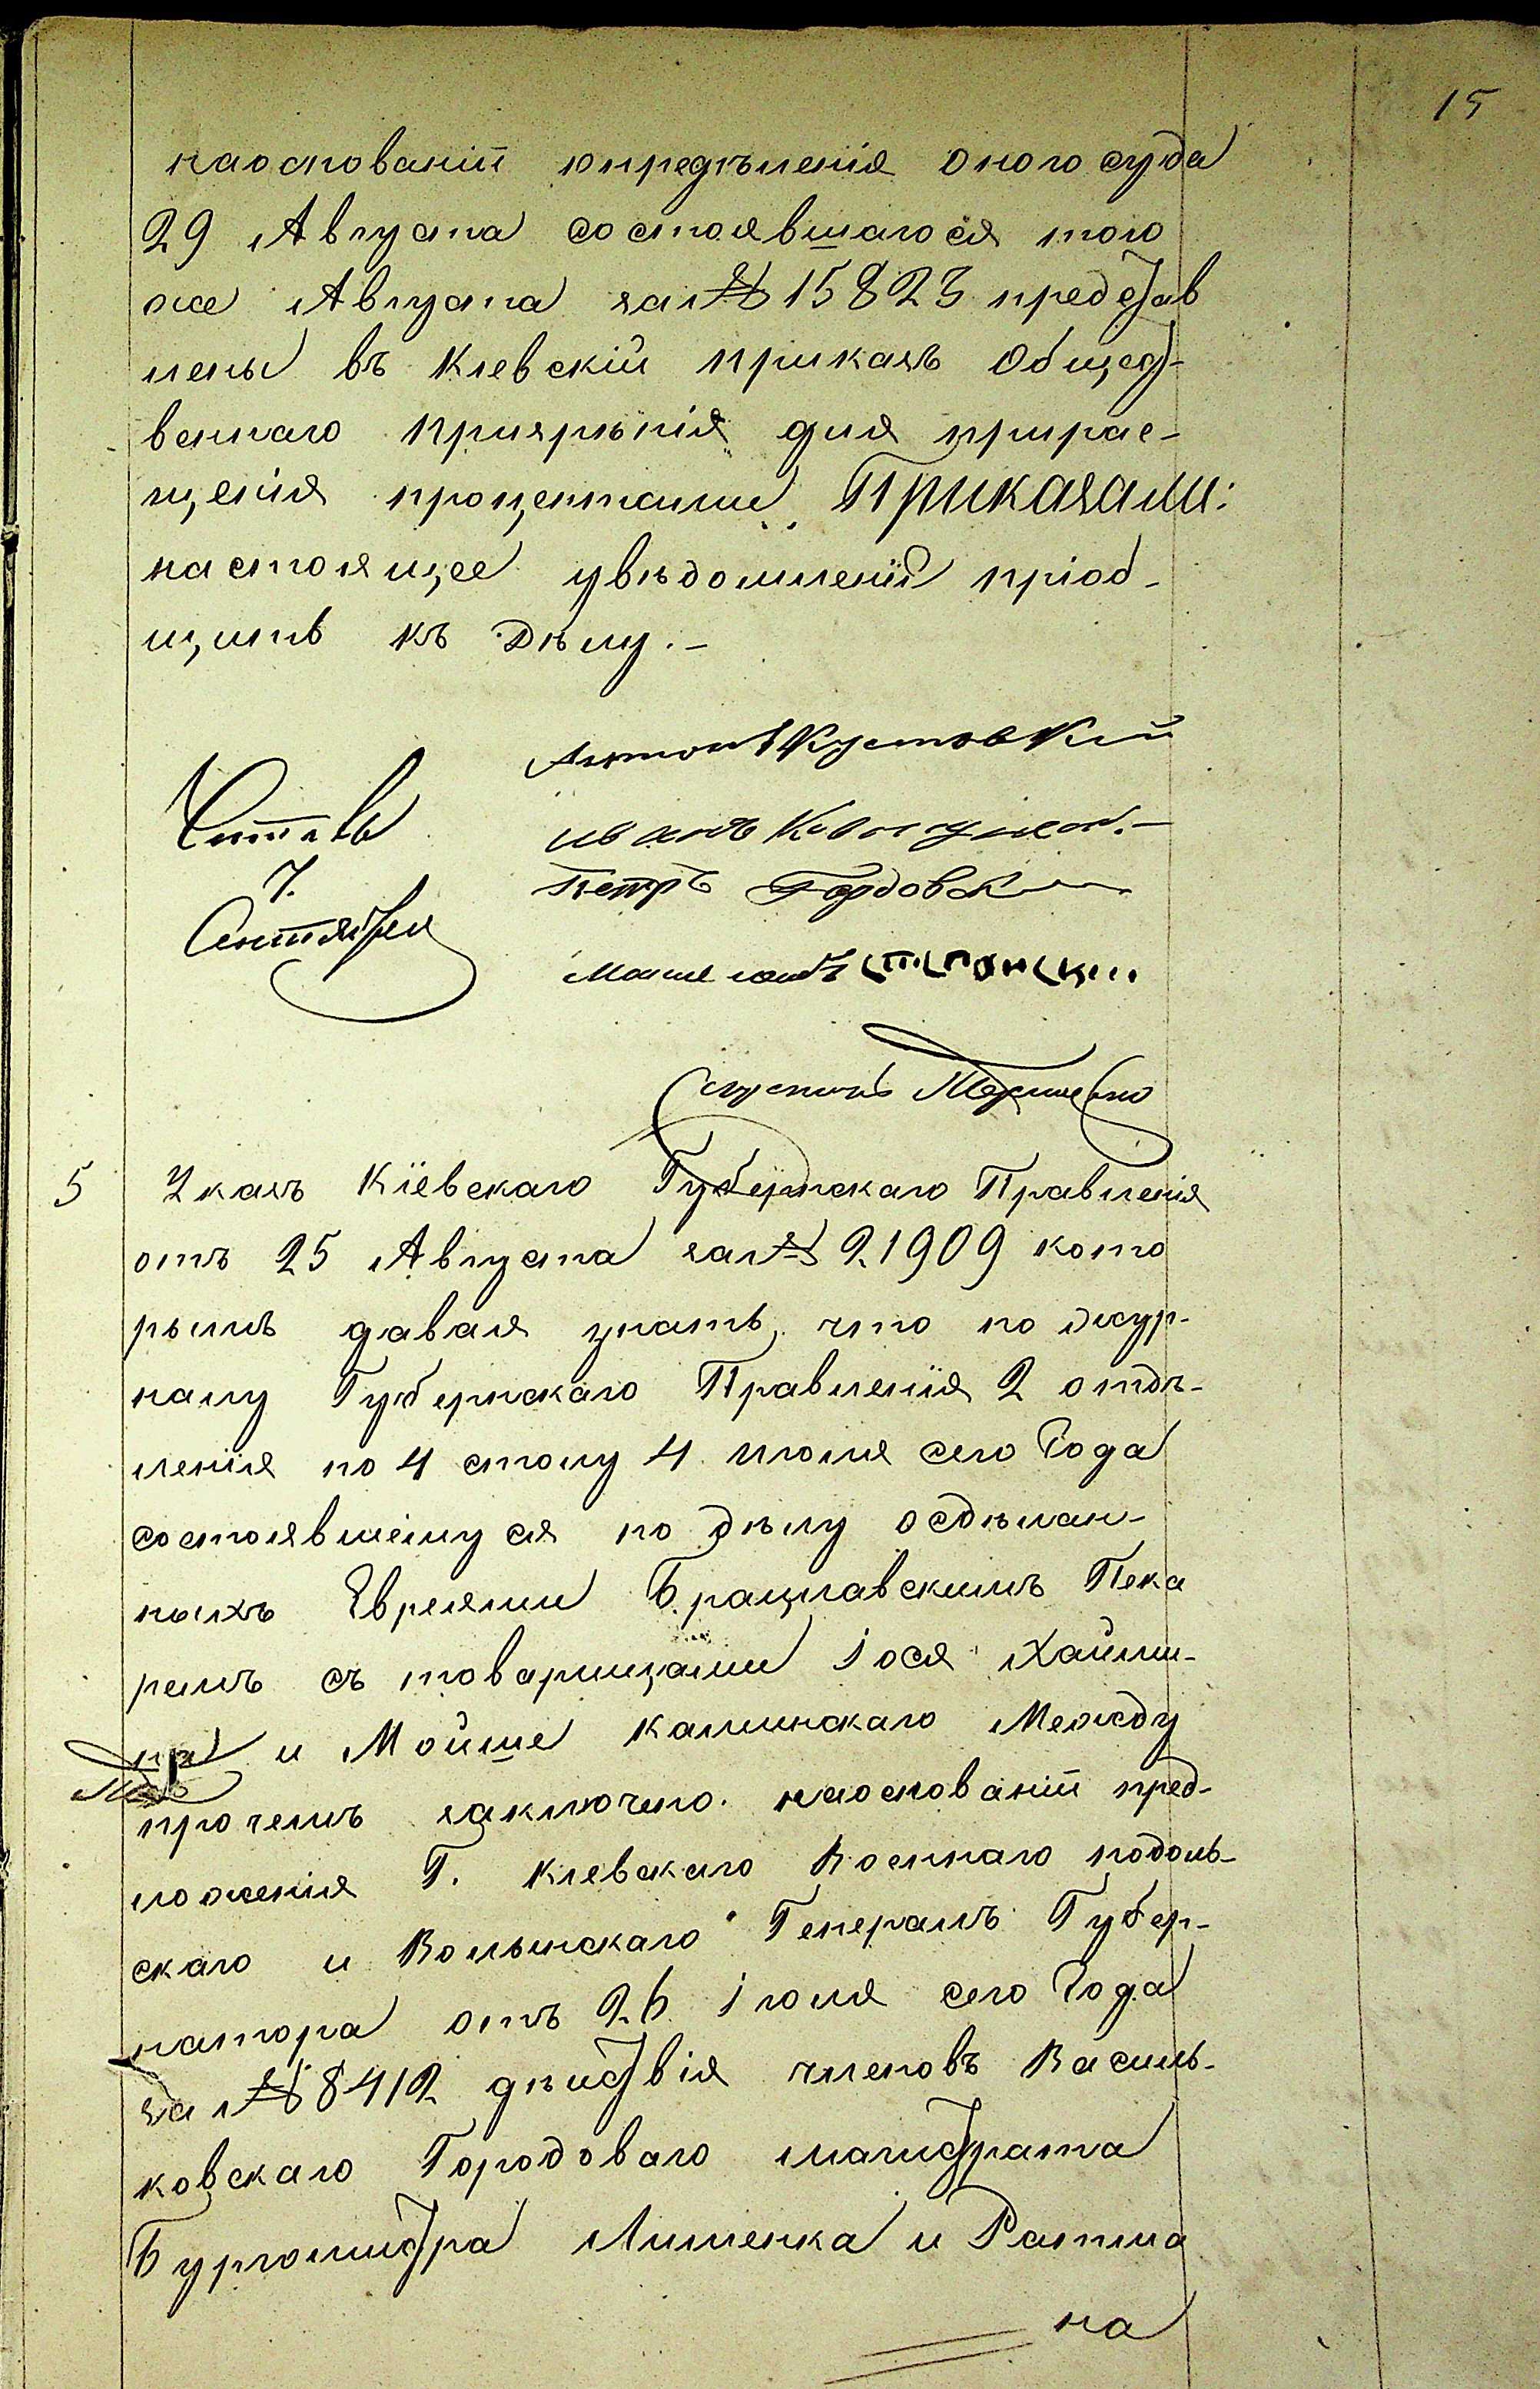 15
наоснованіи юпредѣленія оного суда
29 Августа состоявшагося того
же Августа за № 15823 представ
лены въ Кіевскій приказъ Общест-
веннаго призрѣнія для прирас-
щенія процентами Приказали:
настоящее увѣдомленіе пріоб-
щить къ дѣлу.-
Антонъ Кустовскій
Читалъ
иванъ
7.
Петръ Гордовскій
Сентября
5 Указъ Кіевскаго Губернскаго Правленія
отъ 25 Августа за № 21909 кото
рымъ давая знать, что по жур-
налу Губернскаго Правленія 2 отдѣ-
ленія по 4 столу 4 июля сего Года
состоявшемуся по дѣлу осдѣлан-
ныхъ Евреями Брацлавскимъ Пека
ремъ съ товарищами Іося Хайми-
на и Мойше Калинскаго Между
прочемъ заключено. наоснованіи пред-
ложенія Г. Кіевскаго Военнаго подоль-
скаго и Волынскаго Генералъ Губер-
натора отъ 26 Іюля сего Года
за № 8412 дѣйствія членовъ Василь-
ковскаго Городоваго магистрата
Бургомистра Лименка и Ратма
на